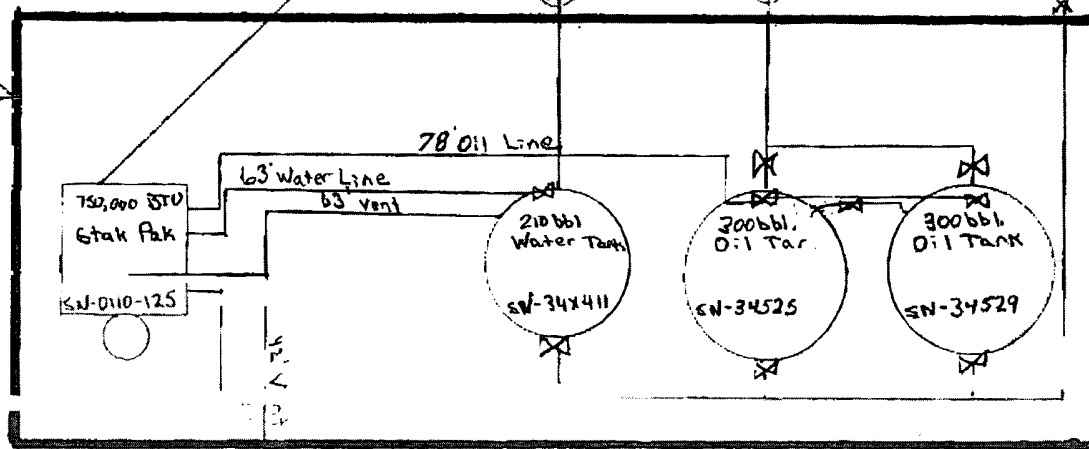 78' Oil Line
63' Water Line
63' Vent
750,000 BTU
Stak Pak
SN-0110-125
210 bbl
Water Tank
300 bbl.
Oil Tan
SN-34525
300 bbl.
Oil Tank
SN-34529